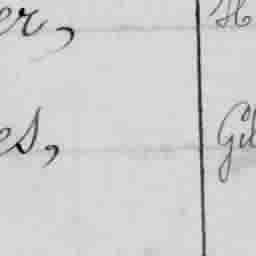 er, H
es, Gil